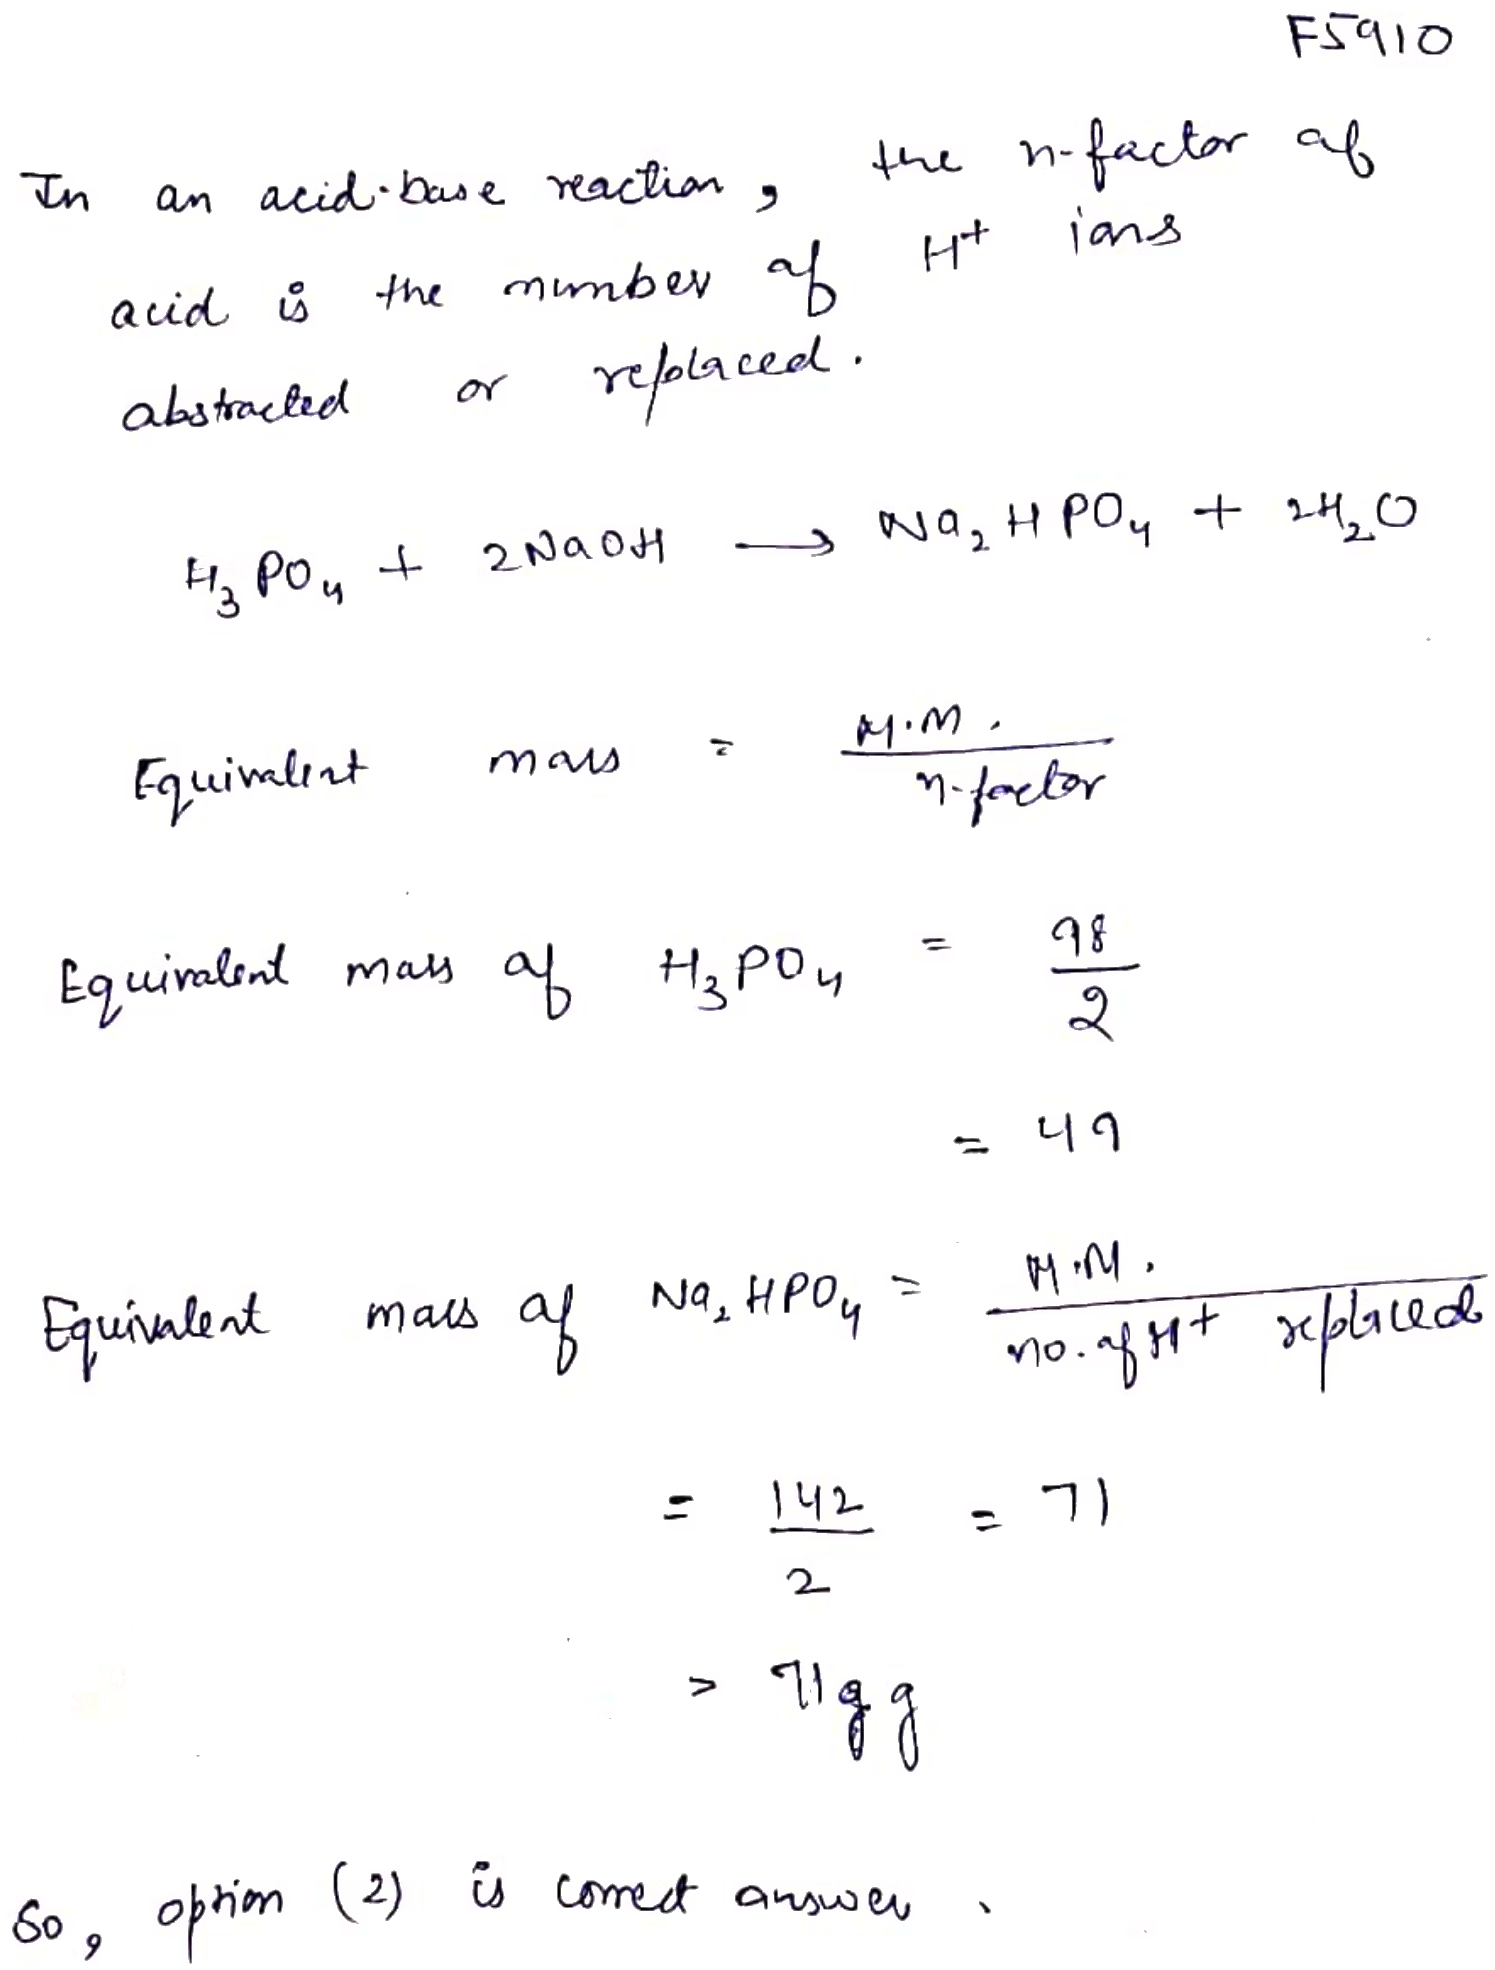 F5910
In an acid-base reaction, the n-factor of
acid is the number of H+ ions
abstracted or replaced.
H3PO4 + 2NaOH → Na2HPO4 + 2H2O
Equivalent mass = M.M. / n-factor
Equivalent mass of H3PO4 = 98 / 2
= 49
Equivalent mass of Na2HPO4 = M.M. / no. of H+ replaced
= 142 / 2 = 71
> 71 g g
So, option (2) is correct answer.